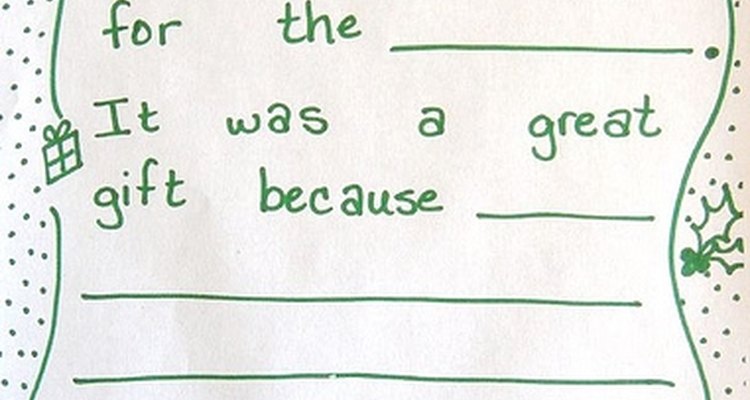 for the ____________.
It was a great
gift because ________
____________________
____________________